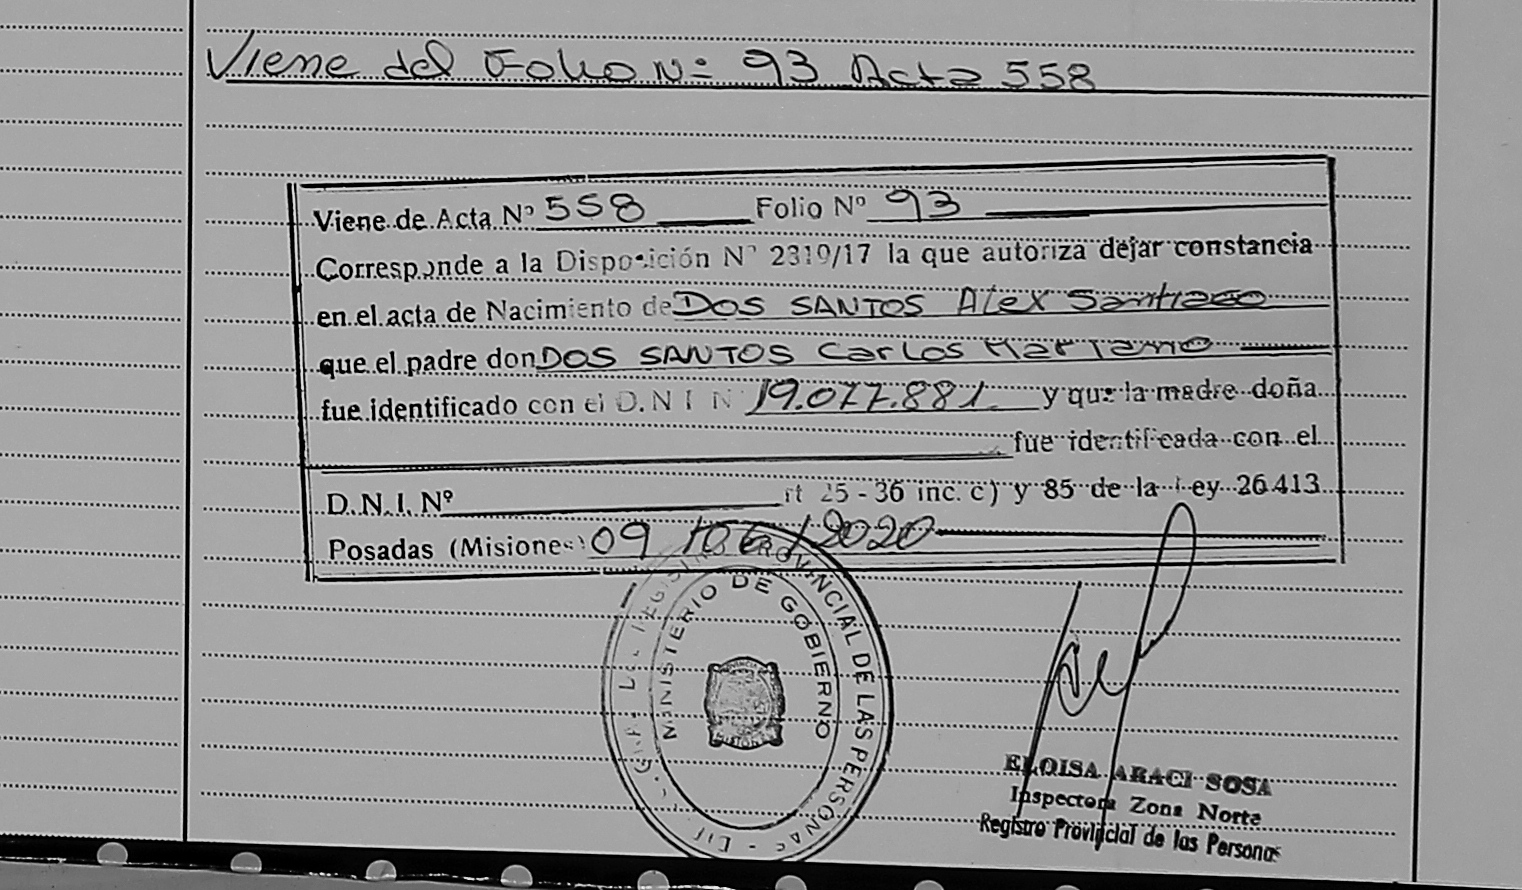 Viene del Folio Nº 93 Acta 558
Viene de Acta Nº 558 Folio Nº 93
Corresponde a la Disposición Nº 2310/17 la que autoriza dejar constancia
en el acta de Nacimiento de DOS SANTOS Alex Santiago
que el padre don DOS SANTOS Carlos Mariano
fue identificado con el D.N.I Nº 19.077.881 y que la madre doña
fue identificada con el
D.N.I. Nº rt 25 - 36 inc. c) y 85 de la Ley 26.413
Posadas (Misiones) 09 /06/2020
REGISTRO PROVINCIAL DE LAS PERSONAS
MINISTERIO DE GOBIERNO
ELOISA ARACI SOSA
Inspectora Zona Norte
Registro Provincial de las Personas